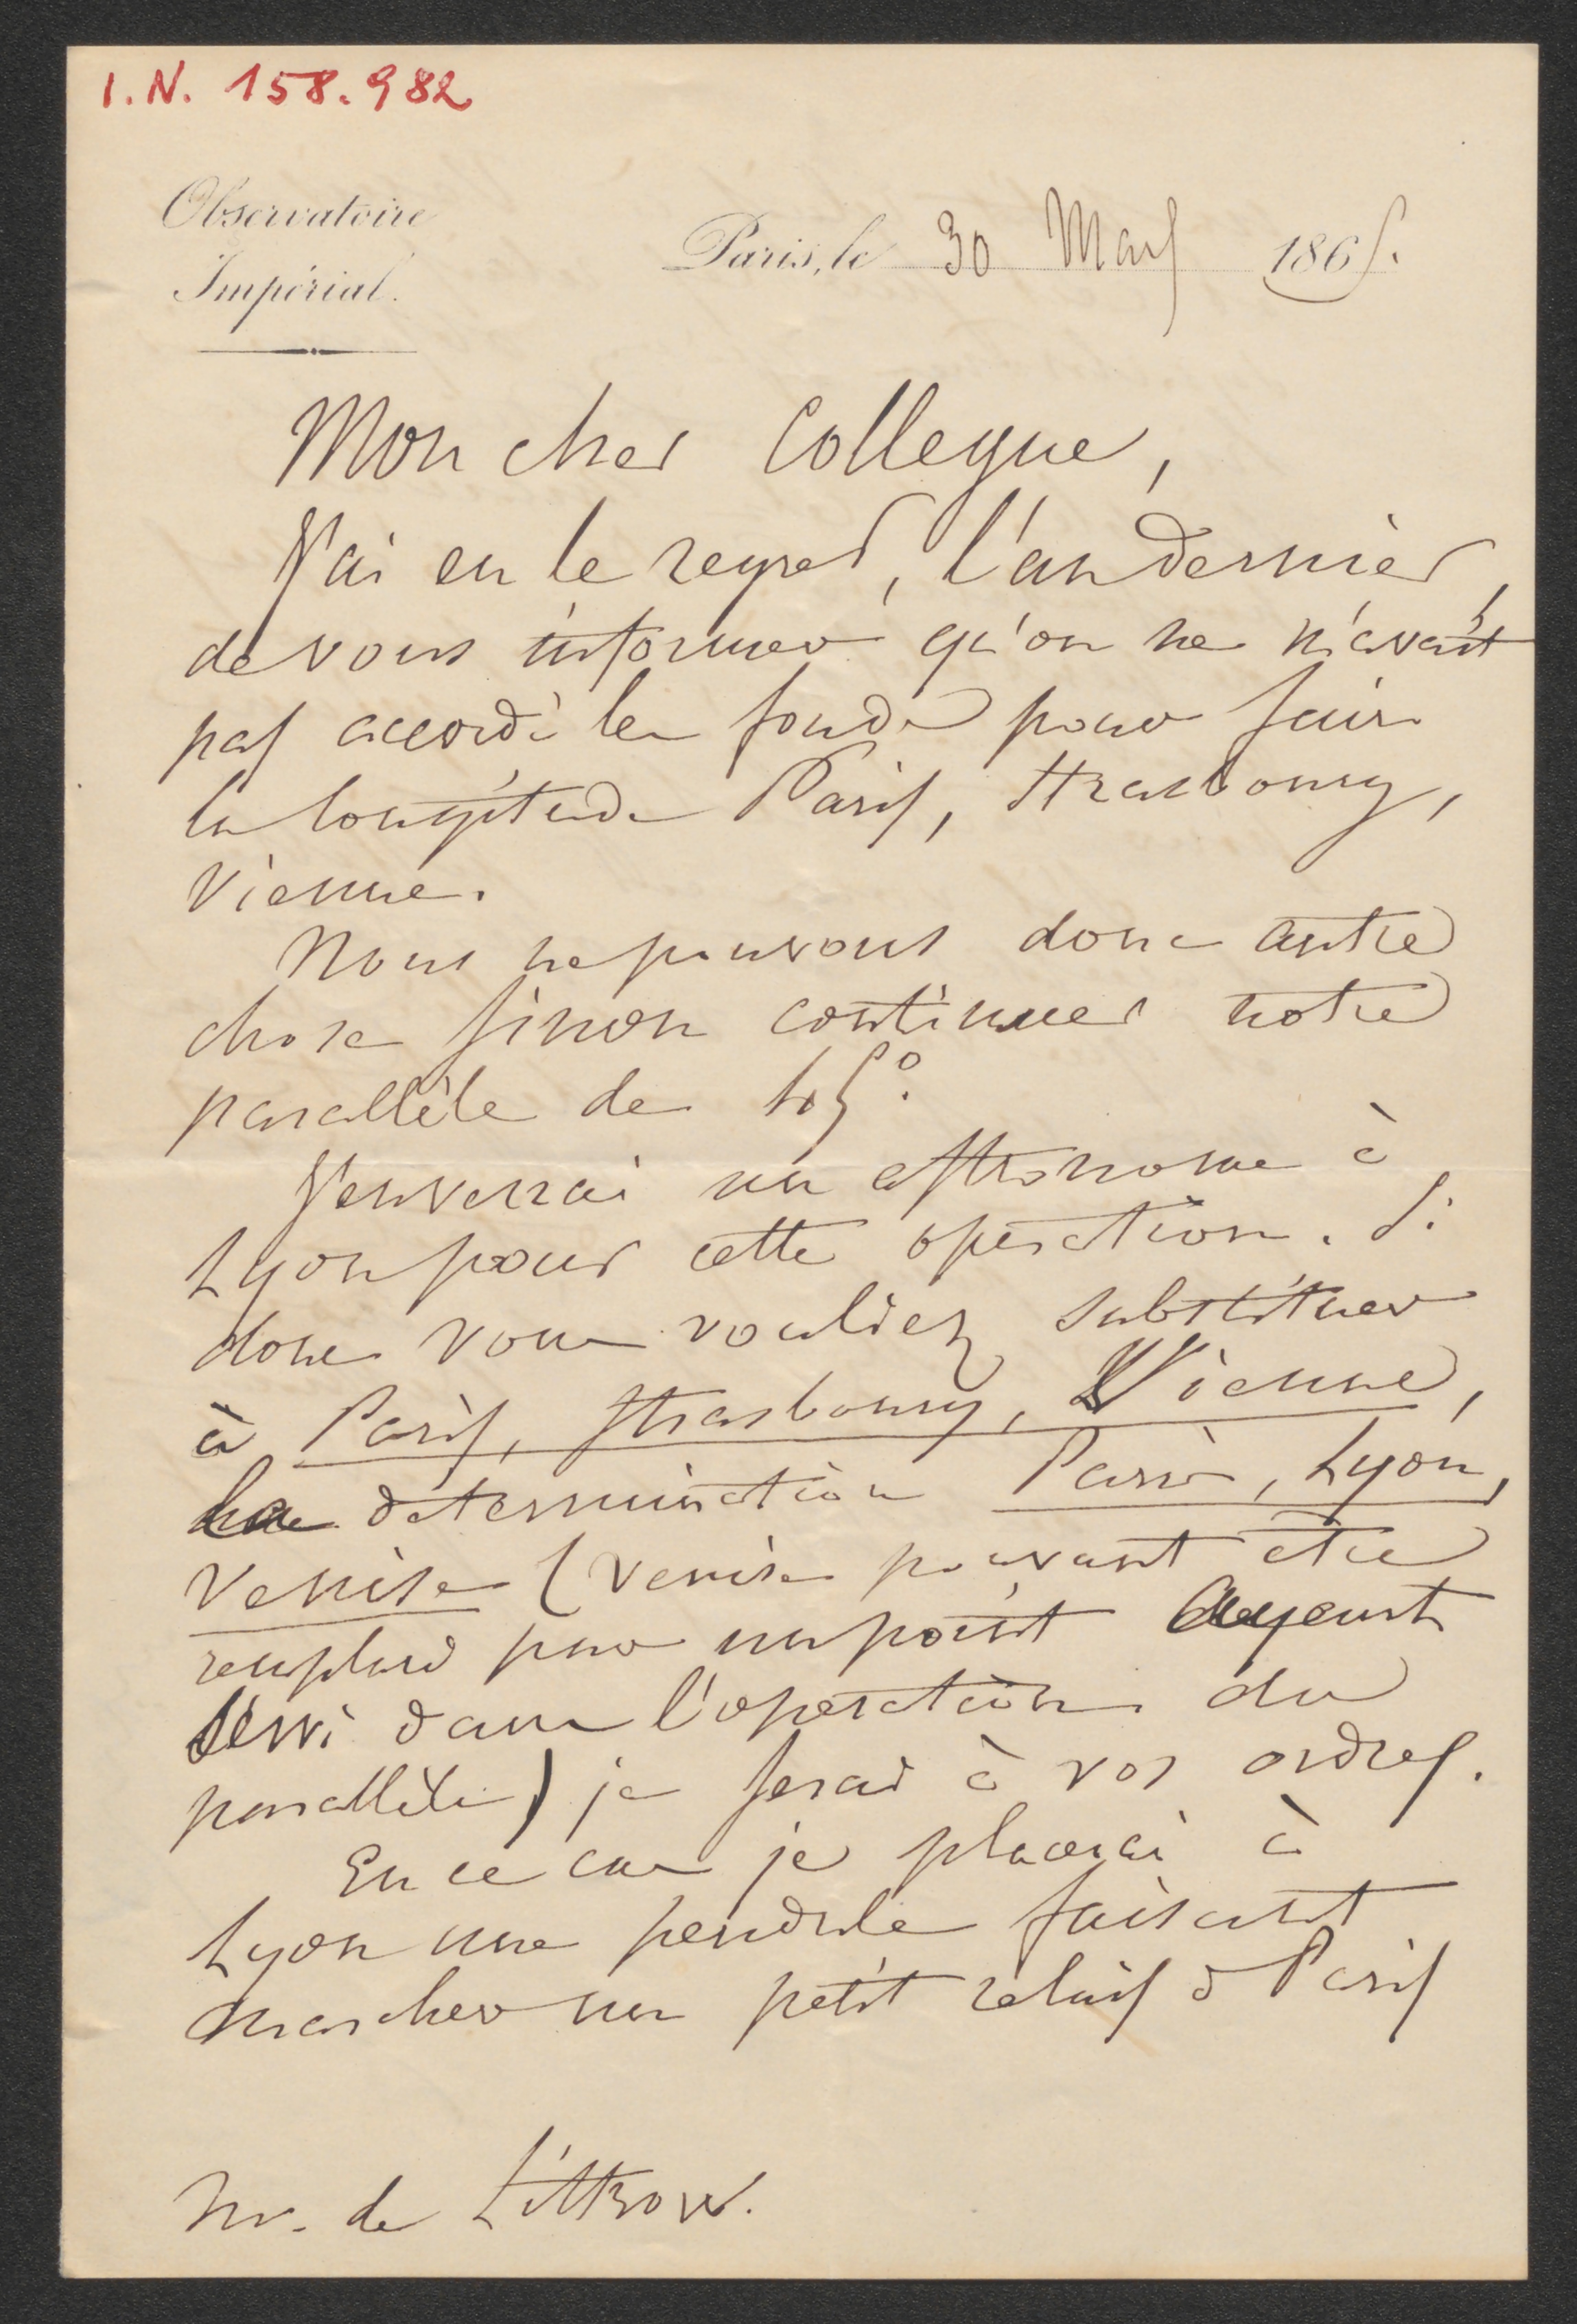 I.N. 158.982
Observatoire
Impérial.
Paris, le 30 Mars 1865.
Mon cher Collegue,
J'ai eu le regret, l'an dernier,
de vous informer qu'on ne m'avait
pas accordé les fonds pour faire
la longitude Paris, Strasbourg,
Vienne.
Nous ne pouvons donc autre
chose sinon continuer notre
parallèle de 45°.
J'enverrai un astronome à
Lyon pour cette opération. Si
donc vous vouliez substituer
à Paris, Strasbourg, Vienne,
la determination Paris, Lyon,
Venise (Venise pouvant être
remplacé par un point ayant
servi dans l'opération du
parallèle) je serais à vos ordres.
En ce cas je placerai à
Lyon une pendule faisant
marcher un petit relais à Paris
Mr. de Littrow.